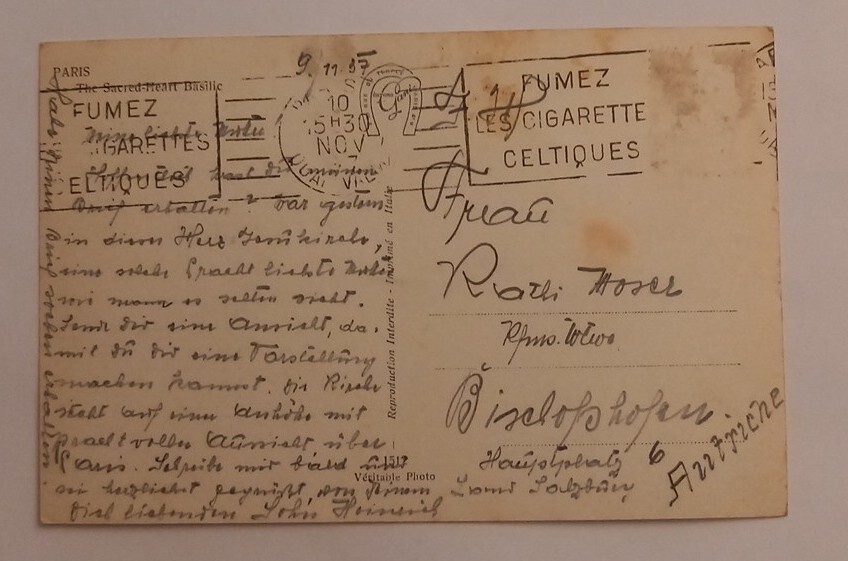 9. 11. 37
PARIS
The Sacred-Heart Basilic
FUMEZ
CIGARETTES
CELTIQUES
10
15H30
NOV
FUMEZ
LES CIGARETTE
CELTIQUES
Meine liebste Mutter
hast du meinen
Brief erhalten? War gestern
in dieser Herz Jesukirche,
eine solche Pracht liebste Mutter
wie mann es selten sieht.
Sende dir eine Ansicht, da-
mit du dir eine Vorstellung
machen kannst. Die Kirche
steht auf einer Anhöhe mit
prachtvoller Aussicht über
Paris. Schreibe mir bald und
sei herzlichst gegrüßt, von Deinem
Dich liebenden Sohn Heinrich
Habe Deinen Brief soeben erhalten.
Reproduction Interdite - Imprimé en Italie
1517
Véritable Photo
Frau
Kathi Moser
Kfms. Wtwe
Bischofshofen
Hauptplatz 6
Land Salzburg
Autriche